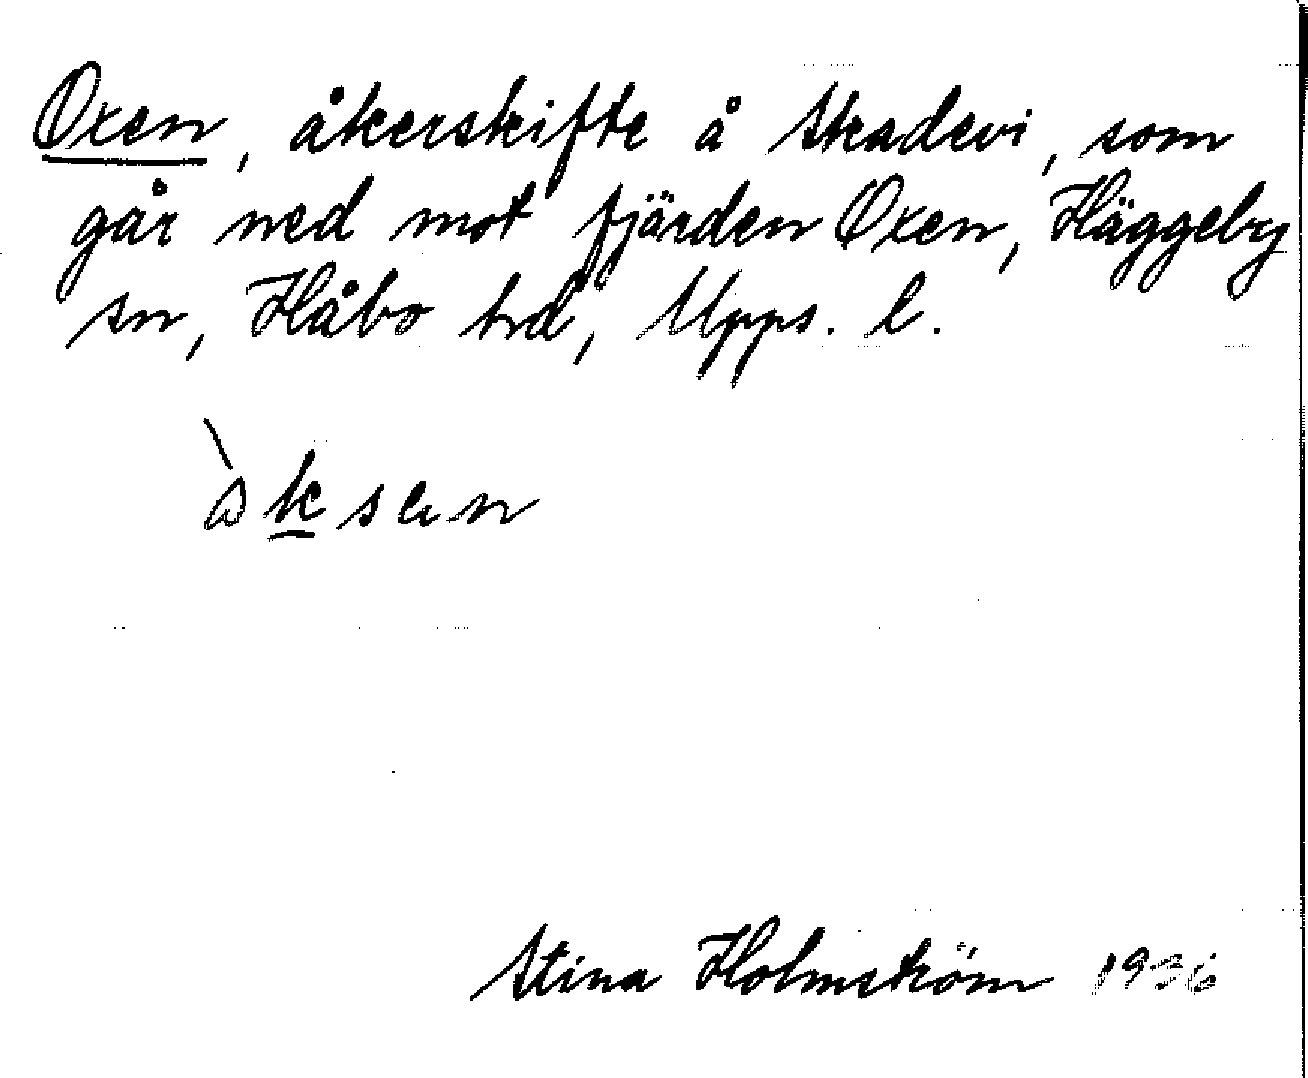 Oxen, åkerskifte å Skadevi, som
går ned mot fjärden Oxen, Häggeby
sn, Håbo hd, Upps. l.
òksen
Stina Holmström 1936